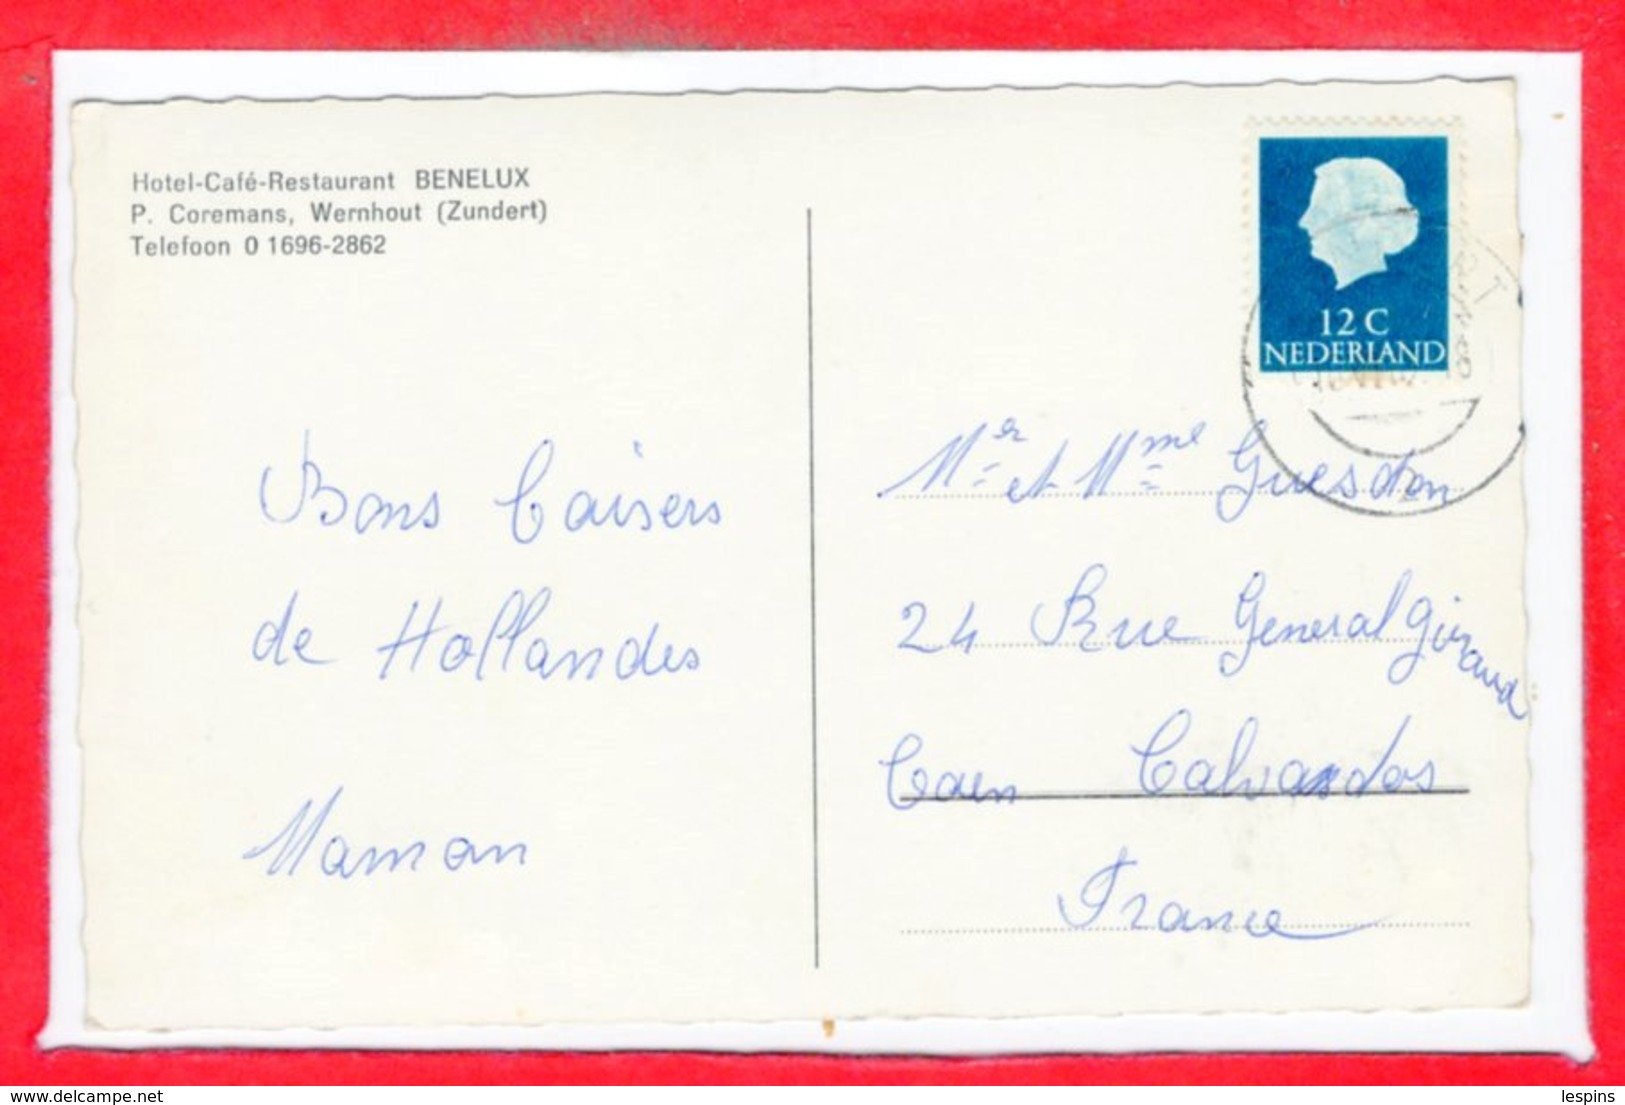 Hotel-Café-Restaurant BENELUX
P. Coremans, Wernhout (Zundert)
Telefoon 0 1696-2862
12 C
NEDERLAND
Bons Baisers
de Hollandes
Maman
Mr et Mme Guesdon
24 Rue General Giraud
Caen Calvados
France
www.delcampe.net
lespins